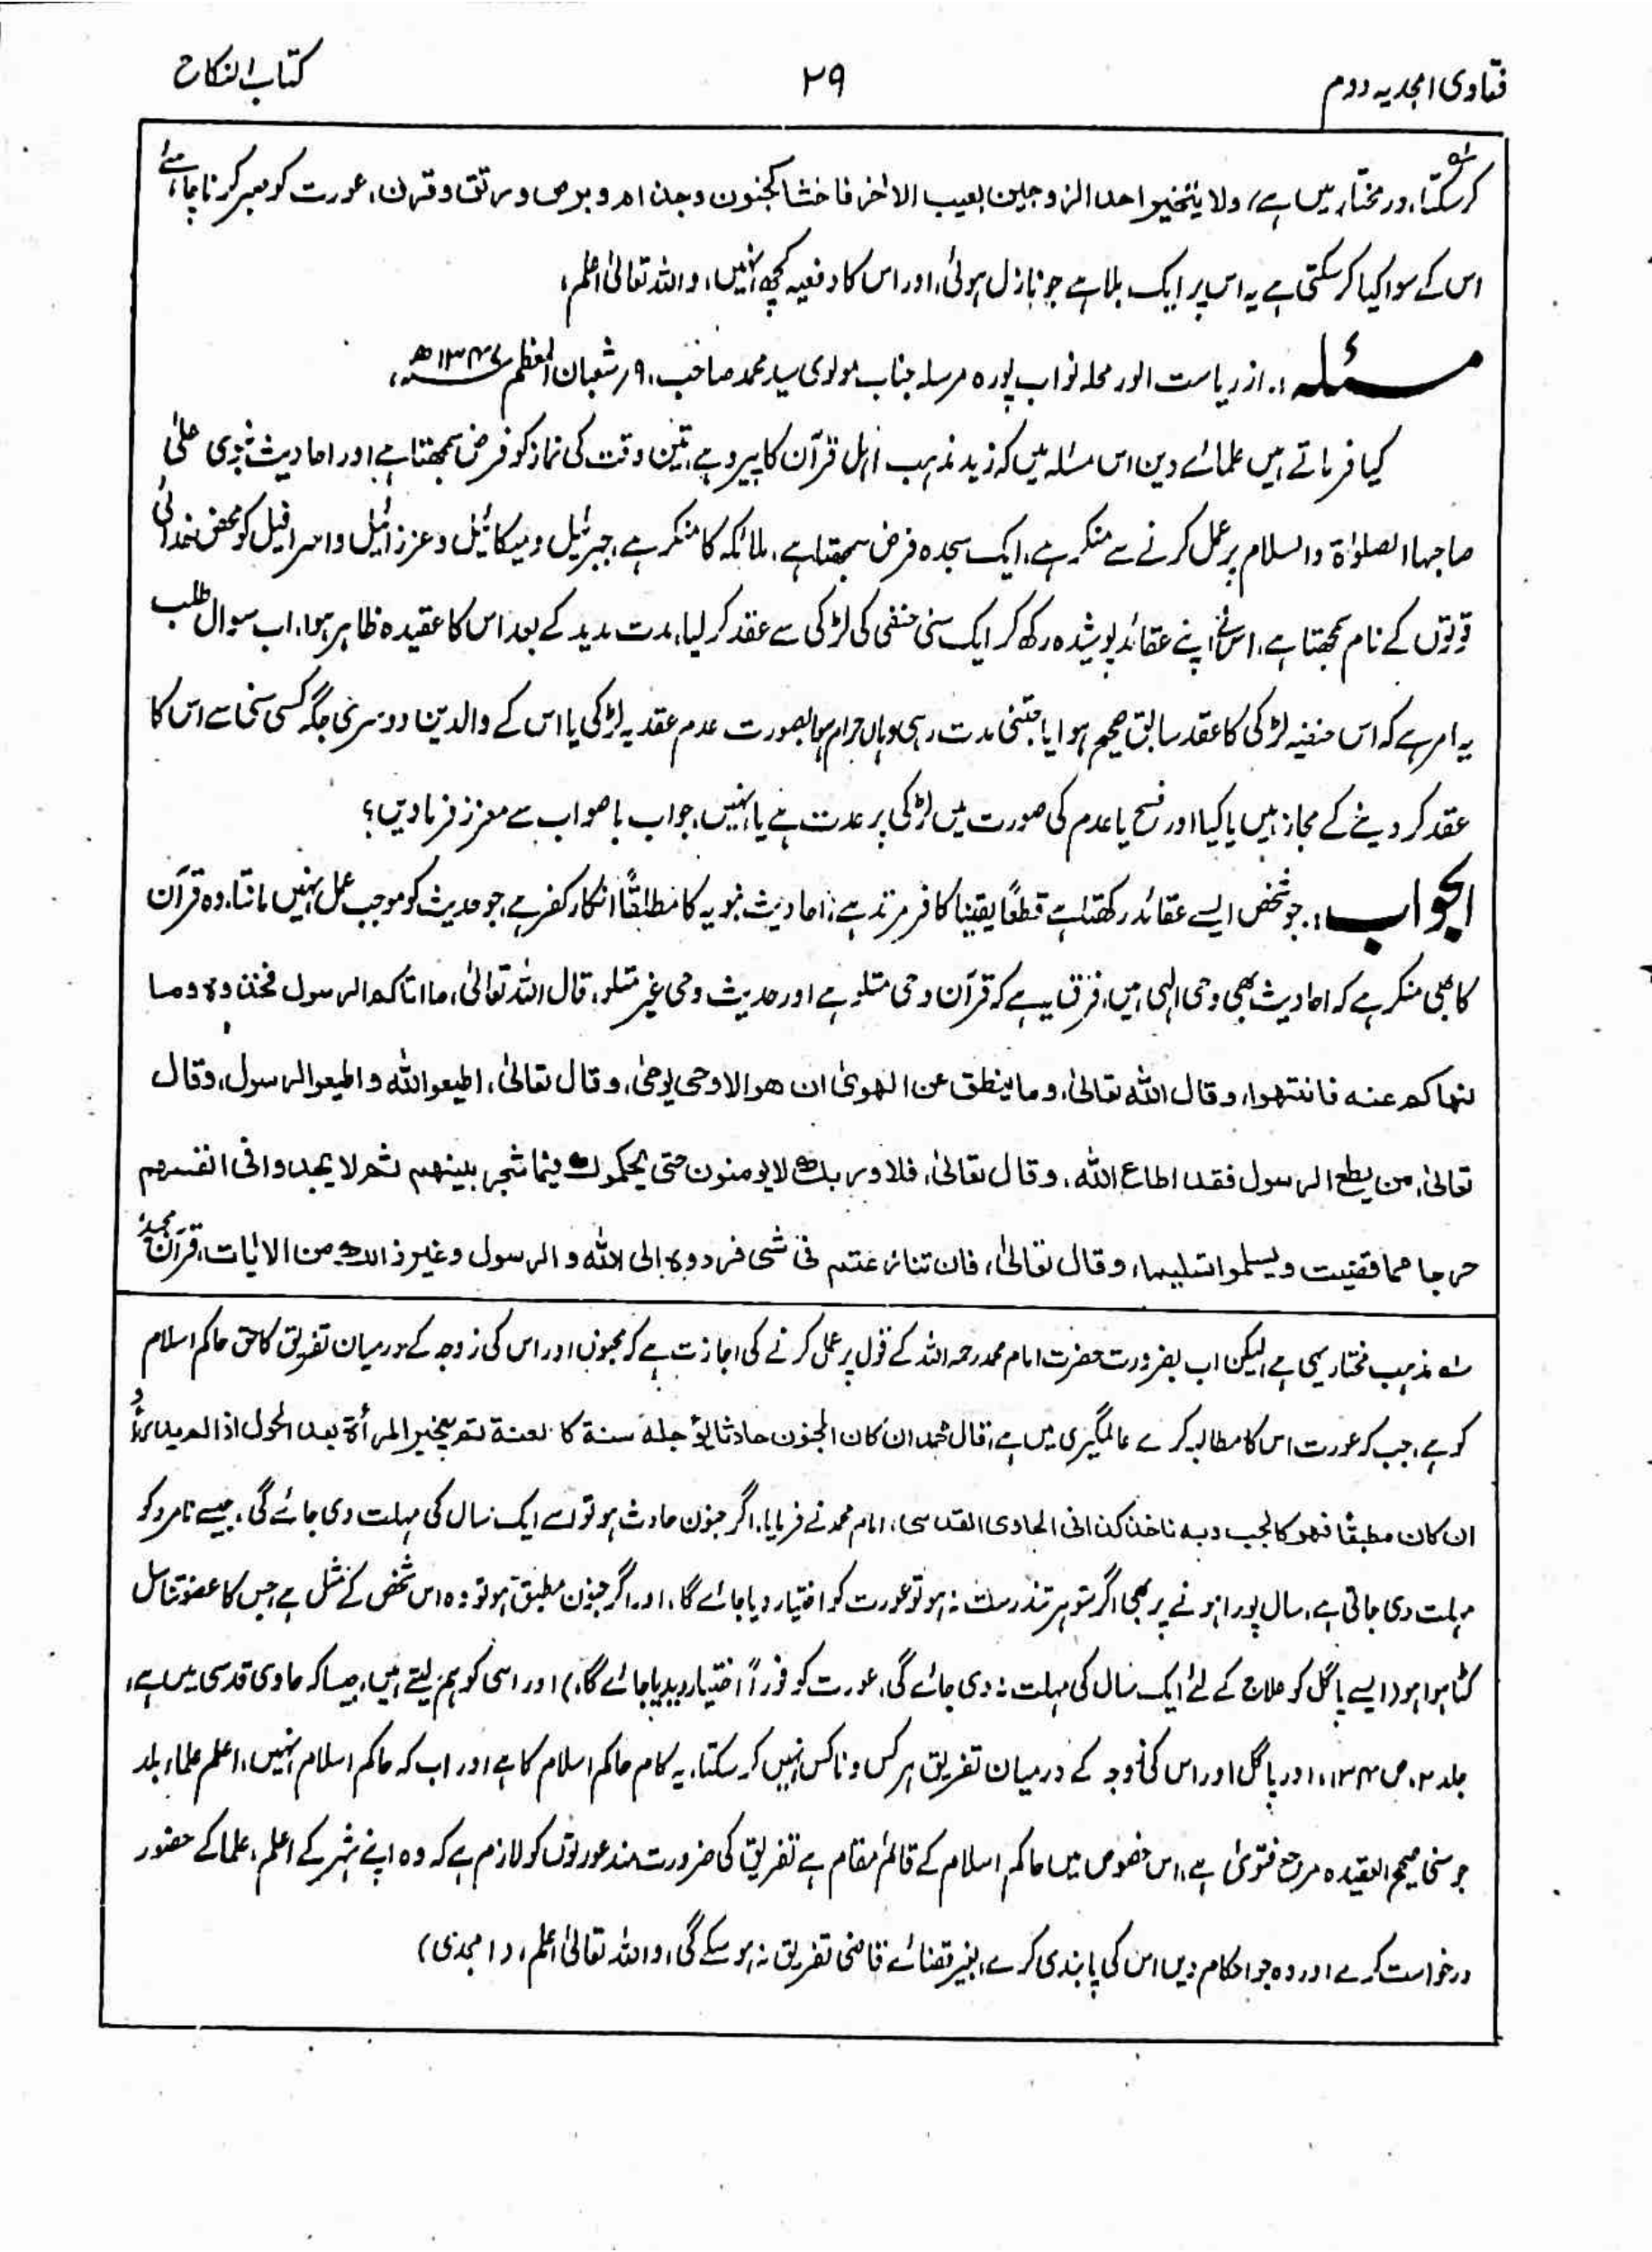 فتاوی امجدیہ دوم
۲۹
کتاب النکاح
کرسکتا،؎ درمختار میں ہے، ولا یتخیر احد الزوجین بعیب الاٰخر فاحشا کجنون وجذام وبرص ورتق وقرن، عورت کو صبر کرنا چاہئے
اس کے سوا کیا کرسکتی ہے یہ اس پر ایک بلا ہے جو نازل ہوئی، اور اس کا دفعیہ کچھ نہیں، واللہ تعالیٰ اعلم،
مسئلہ:۔ از ریاست الور محلہ نواب پورہ مرسلہ جناب مولوی سید محمد صاحب، ۹؍ شعبان المعظم ۱۳۴۷ھ،
کیا فرماتے ہیں علمائے دین اس مسئلہ میں کہ زید مذہب اہل قرآن کا پیرو ہے، تین وقت کی نماز کو فرض سمجھتا ہے اور احادیث نبوی علیٰ
صاحبہا الصلوٰۃ والسلام پر عمل کرنے سے منکر ہے، ایک سجدہ فرض سمجھتا ہے، ملائکہ کا منکر ہے، جبرئیل ومیکائیل وعزرائیل واسرافیل کو محض خدائی
قوتوں کے نام سمجھتا ہے، اس نے اپنے عقائد پوشیدہ رکھ کر ایک سنی حنفی کی لڑکی سے عقد کرلیا، مدت مدید کے بعد اس کا عقیدہ ظاہر ہوا، اب سوال طلب
یہ امر ہے کہ اس حنفیہ لڑکی کا عقد سابق صحیح ہوا یا جتنی مدت رہی وہاں حرام ہوا بصورت عدم عقد یہ لڑکی یا اس کے والدین دوسری جگہ کسی سنی سے اس کا
عقد کردینے کے مجاز ہیں یا کیا اور فسخ یا عدم کی صورت میں لڑکی پر عدت ہے یا نہیں، جواب باصواب سے معزز فرمادیں؟
الجواب:۔ جو شخص ایسے عقائد رکھتا ہے قطعاً یقیناً کافر مرتد ہے، احادیث نبویہ کا مطلقاً انکار کفر ہے، جو حدیث کو موجب عمل نہیں مانتا، وہ قرآن
کا بھی منکر ہے کہ احادیث بھی وحی الٰہی ہیں، فرق یہ ہے کہ قرآن وحی متلو ہے اور حدیث وحی غیر متلو، قال اللہ تعالیٰ، ما اتاکم الرسول فخذوہ وما
نہاکم عنہ فانتہوا، وقال اللہ تعالیٰ، وما ینطق عن الہویٰ ان ھو الا وحی یوحیٰ، وقال تعالیٰ، اطیعوا اللہ واطیعوا الرسول، وقال
تعالیٰ، من یطع الرسول فقد اطاع اللہ، وقال تعالیٰ، فلا وربک لا یومنون حتی یحکموک فیما شجر بینہم ثم لا یجدوا فی انفسہم
حرجا مما قضیت ویسلموا تسلیما، وقال تعالیٰ، فان تنازعتم فی شئی فردوہ الی اللہ والرسول وغیر ذالک من الاٰیات، قرآن مجید
؎ مذہب مختار یہی ہے، لیکن اب بضرورت حضرت امام محمد رحمہ اللہ کے قول پر عمل کرنے کی اجازت ہے کہ مجنوں اور اس کی زوجہ کے درمیان تفریق کا حق حاکم اسلام
کو ہے، جب کہ عورت اس کا مطالبہ کرے عالمگیری میں ہے، قال محمد ان کان الجنون حادثا یؤجلہ سنۃ کالعنۃ ثم یخیر المرأۃ بعد الحول اذا لم یبرأ و
ان کان مطبقاً فھو کالجب وبہ ناخذ کذا فی الحاوی القدسی، امام محمد نے فرمایا، اگر جنون حادث ہو تو اسے ایک سال کی مہلت دی جائے گی، جیسے نامرد کو
مہلت دی جاتی ہے، سال پورا ہونے پر بھی اگر شوہر تندرست نہ ہو تو عورت کو اختیار دیا جائے گا، اور اگر جنون مطبق ہو تو وہ اس شخص کے مثل ہے جس کا عضو تناسل
کٹا ہوا ہو (ایسے پاگل کو علاج کے لئے ایک سال کی مہلت نہ دی جائے گی، عورت کو فوراً اختیار دیدیا جائے گا،) اور اسی کو ہم لیتے ہیں، جیسا کہ حاوی قدسی میں ہے،
جلد ۲، ص ۱۳۴، اور پاگل اور اس کی زوجہ کے درمیان تفریق ہر کس و ناکس نہیں کرسکتا، یہ کام حاکم اسلام کا ہے اور اب کہ حاکم اسلام نہیں، اعلم علماء بلد
جو سنی صحیح العقیدہ مرجع فتویٰ ہے، اس خصوص میں حاکم اسلام کے قائم مقام ہے تفریق کی ضرورت مند عورتوں کو لازم ہے کہ وہ اپنے شہر کے اعلم، علما کے حضور
درخواست کرے اور وہ جو احکام دیں اس کی پابندی کرے، بغیر قضائے قاضی تفریق نہ ہوسکے گی، واللہ تعالیٰ اعلم، (امجدی)